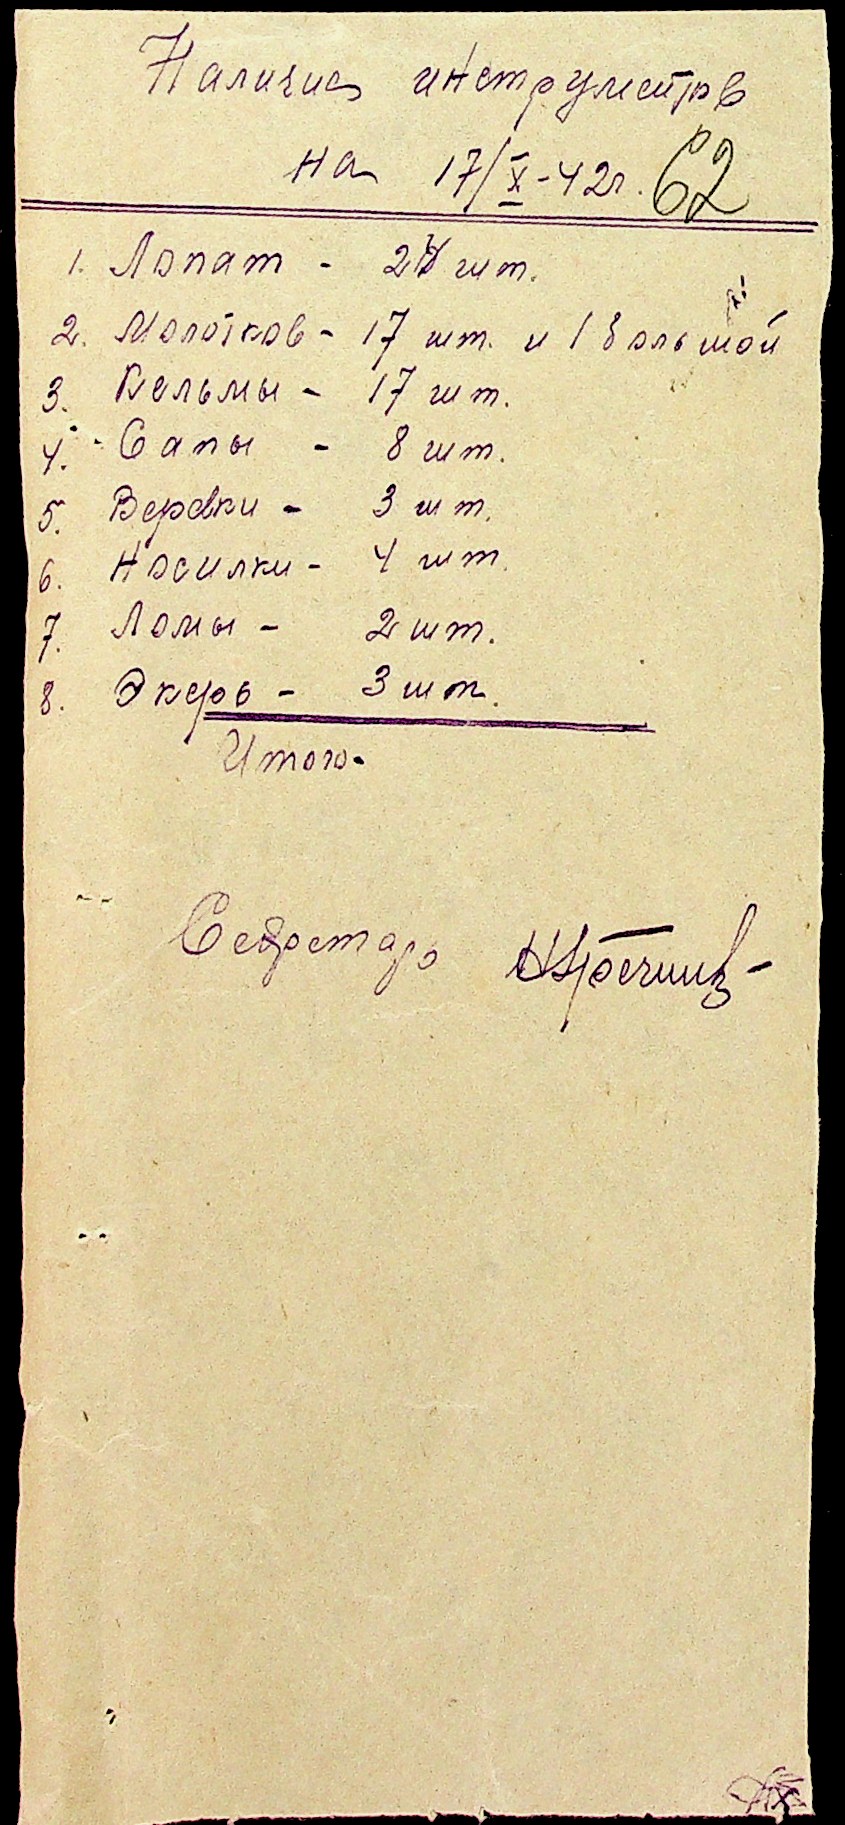 Наличие инструметров
на 17/X-42г. 62
1. Лопат - 24 шт.
2. Молотков - 17 шт. и 1 большой
3. Кельмы - 17 шт.
4. Сапы - 8 шт.
5. Веревки - 3 шт.
6. Носилки - 4 шт.
7. Ломы - 2 шт.
8. Экерь - 3 шт.
Итого-
Секретарь